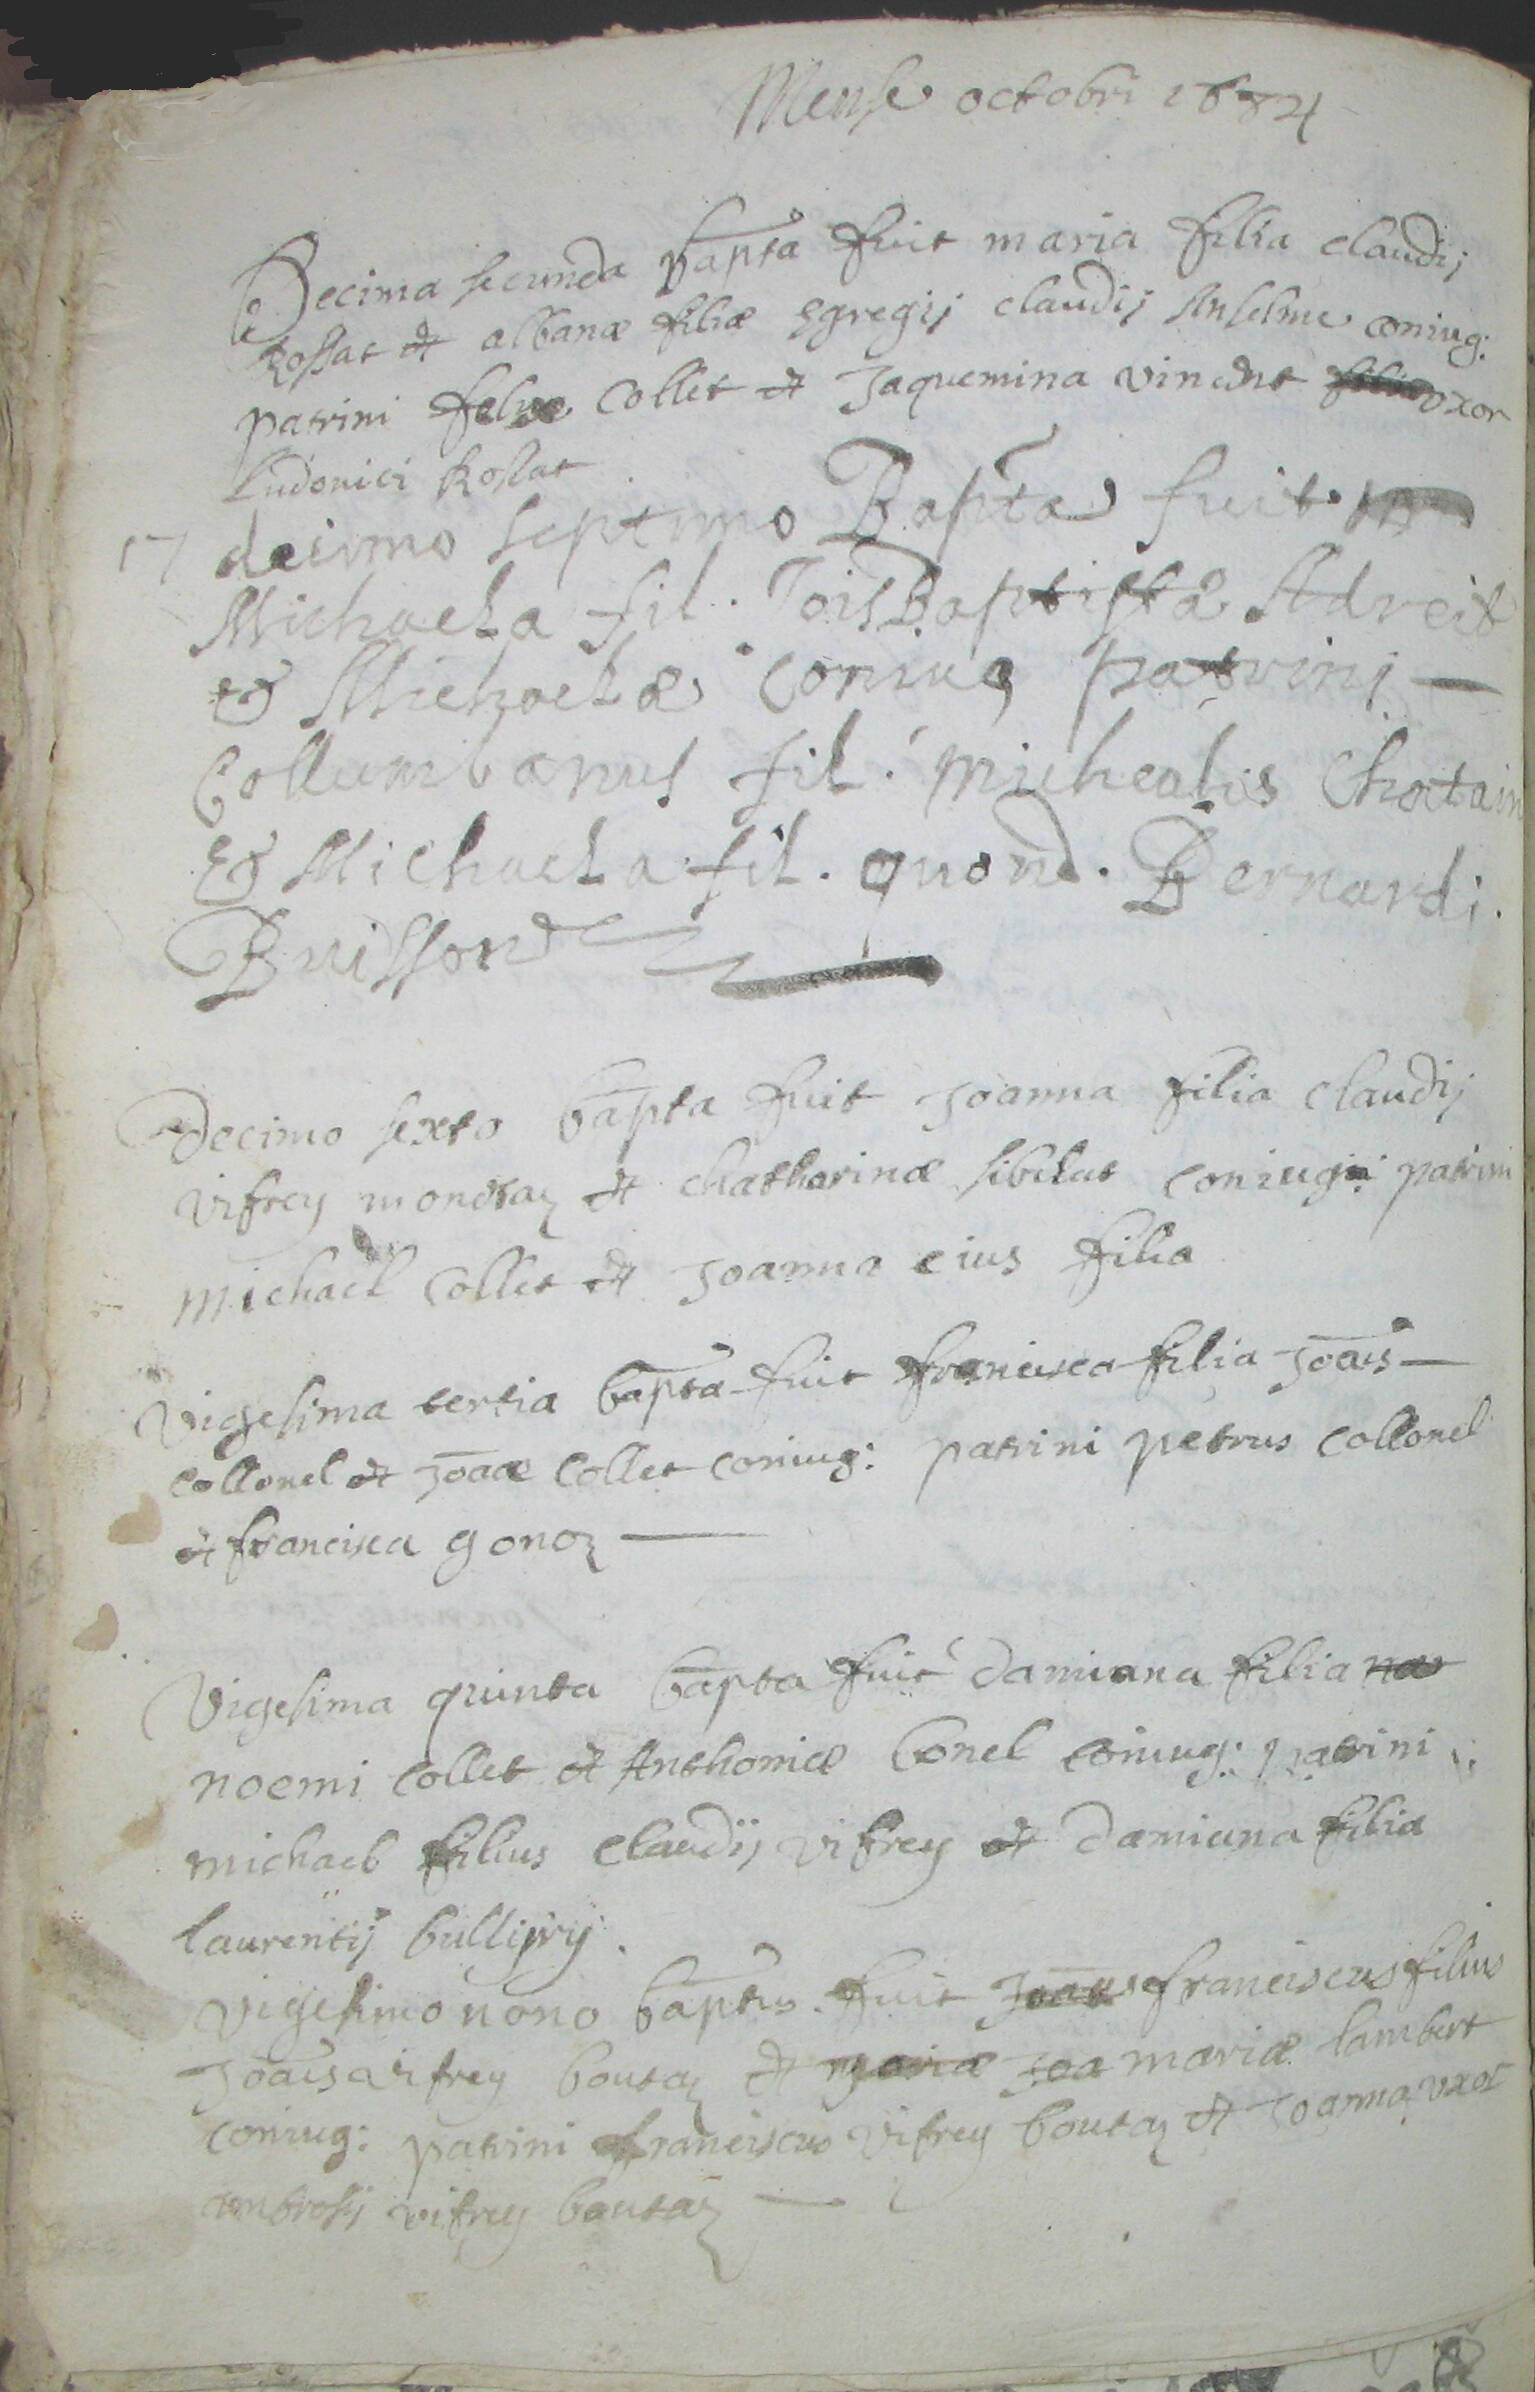 Mense octobri 1674
Decima secunda bapta fuit maria filia claudij
Rossat et albanæ filiæ egregij claudij Anselme coniug:
patrini felix Collet et Jaquemina vincent filia uxor
Ludovici Rossat
17 decimo septimo Bapta fuit
Michaela fil. Jois Baptistæ Adreit
& Michaelæ coniug patrini —
Collumbanus fil. michealis Chatain
& Michaela fil. quond. Bernardi.
Buisson
Decimo sexto bapta fuit Joanna filia claudij
vifrey mondraz et chatharinæ sibelut coniug: patrini
Michael Collet et Joanna eius filia
Vigesima tertia bapta fuit francisca filia Joais —
collonel et Joaæ Collet coniug: patrini petrus collonel
et francisca gonoz —
Vigesima quinta bapta fuit damiana filia na
noemi collet et Anthoniæ bonel coniug: patrini
michael filius claudij vifrey et damiana filia
laurentij
Vigesimo nono baptus fuit Joaes franciscus filius
Joais vifrey boutaz et mariæ Joa mariæ lambert
coniug: patrini franciscus vifrey boutaz et Joanna uxor
ambrosij vifrey boutaz —